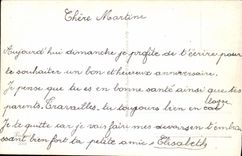 Chère Martine
Aujourd'hui dimanche je profite de t'écrire pour
te souhaiter un bon et heureux anniversaire.
Je pense que tu es en bonne santé ainsi que tes
parents. Travailles-tu toujours bien en
classe
Je te quitte car je vais faire mes devoirs en t'embra
ssant bien fort ta petite amie. Elisabeth